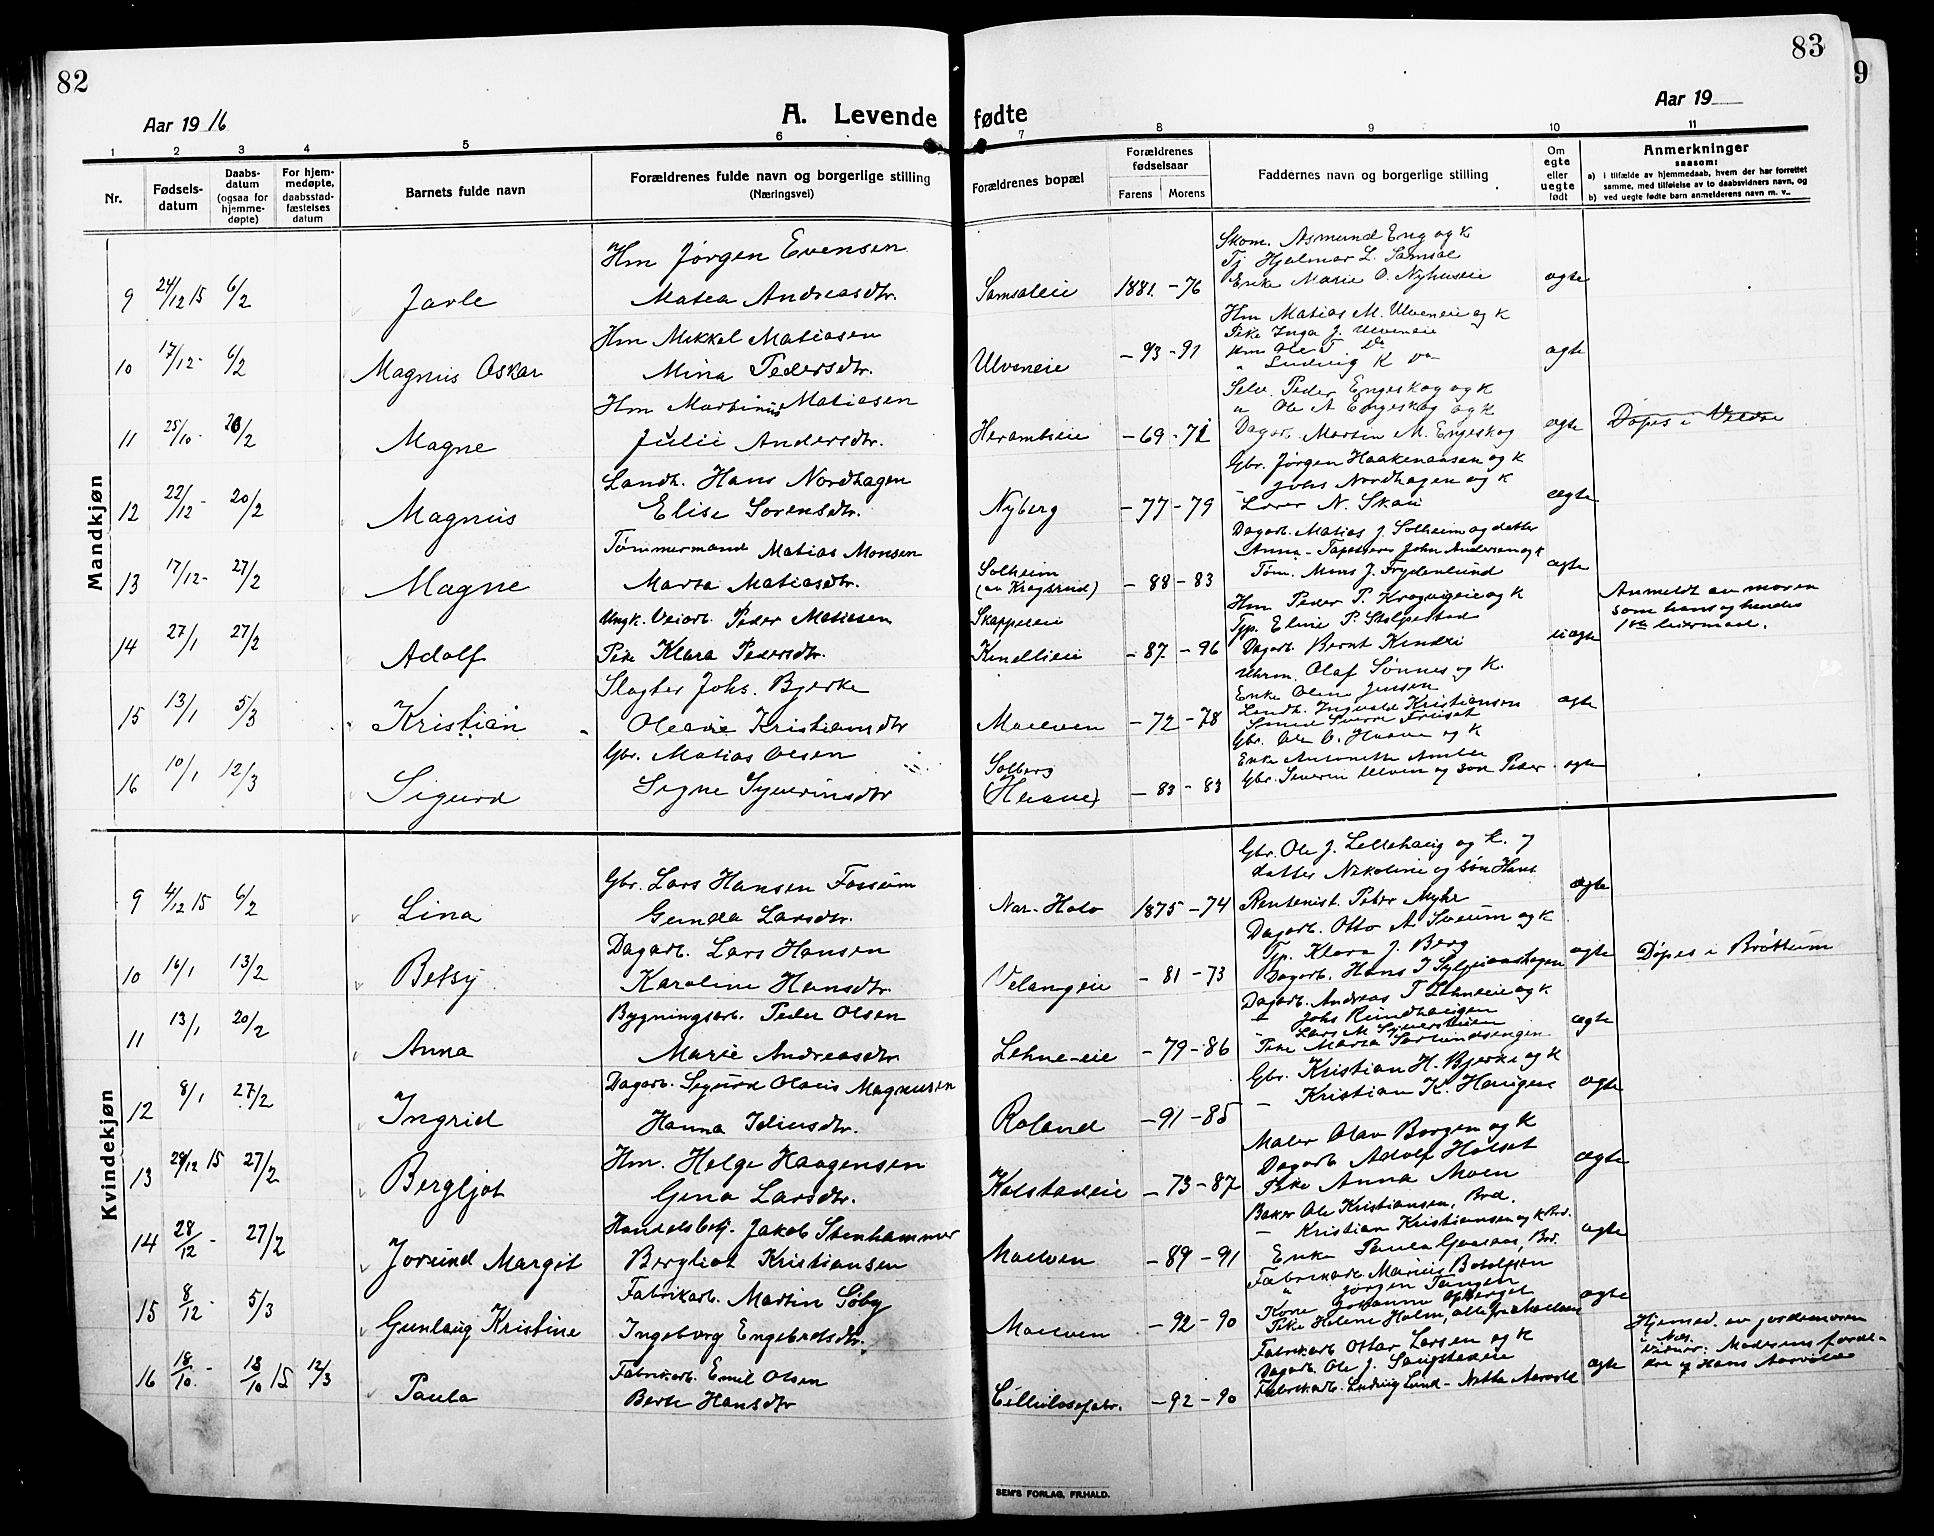 82
83
9
Aar 1916
A. Levende fødte
Aar 19
1 2 3 4 5 6 7 8 9 10 11
Nr.
Fødsels-datum
Daabs-datum (ogsaa for hjemme-døpte)
For hjem-medøpte, daabsstad-fæstelses datum
Barnets fulde navn
Forældrenes fulde navn og borgerlige stilling
(Næringsvei)
Forældrenes bopæl
Forældrenes fødselsaar
Farens Morens
Faddernes navn og borgerlige stilling
Om egte eller uegte født
Anmerkninger
saasom:
a) i tilfælde av hjemmedaab, hvem der har forrettet samme, med tilføielse av to daabsvidners navn, og
b) ved uegte fødte barn anmelderens navn m. v..
Mandkjøn
Hm Jørgen Evensen
Skom. Asmund Eng og K
Tj Hjalmar L. Samsal
9 24/12 15 6/2 Jarle Matea Andreasdtr. Samsaleie 1881 - 76 Enke Marie O. Nyhuseie ægte
Hm Mikkel Matiasen
Hm Matias M. Ulveneie og K
Pike Inga J. Ulveneie
10 17/12 - 6/2 Magnus Oskar Mina Pedersdtr. Ulveneie - 93 - 91 Hm Ole T do
" Ludvig K do ægte
Hm Martinius Matiasen
Selv. Peder Engeskog og K
" Ole A Engeskog og K
11 25/10 - 20/2 Magne Julie Andersdtr. Herambeie - 69 - 71 Dagarb. Martin M. Engeskog ægte Døpes i Veldre
Landh. Hans Nordhagen
Gbr. Jørgen Haakenaasen og K
- Johs Nordhagen og K
12 22/12 - 20/2 Magnus Elise Sorensdtr. Nyberg - 77 - 79 Lærer N. Skau ægte
Tømmermand Matias Monsen
Dagarb. Matias J. Solheim og datter
Anna - Tapetserer John Andersen og K
13 17/12 - 27/2 Magne Marta Matiasdtr. Solheim
(av Kragsrud) - 88 - 83 Tøm. Mons J. Frydenlund ægte
Ungk. Veiarb. Peder Matiasen
Skappeleie
Hm Peder P. Kragvigeie og K
Tjp. Eline P. Stolpestad
14 27/1 27/2 Adolf Pike Klara Pedersdtr. Kindlieie - 87 - 96 Dagarb. Bernt Kindli uægte
Anmeldt av moren
som hans og hendes
1ste leiermaal.
Slagter Johs. Bjerke
Uhrm. Olaf Sønnes og K.
Enke Oline Jensen
15 13/1 5/3 Kristian Oleane Kristiansdtr Moelven - 72 - 78 Landh. Ingvald Kristiansen ægte
Gbr. Matias Olsen
Gbr. Ole O. Haave og K
Enke Antonette Amlie
16 10/1 12/3 Sigurd Signe Syverinsdtr Solberg
(Haave) - 83 - 83 Gbr. Severin Ulven og søn Peder ægte
Kvindekjøn
Gbr. Lars Hansen Fossum
Gbr. Ole J. Lillehaug og K. og
datter Nikoline og søn Hans
9 4/12 15 6/2 Lina Gunda Larsdtr. Nar-Holo 1875 - 74 Rentenist Peter Myhr ægte
Dagarb. Lars Hansen
Dagarb. Otto A Sveum og K
Tjp. Klara J. Berg
10 16/1 13/2 Betsy Karoline Hansdtr. Velangeie - 81 - 73 Dagarb. Hans J ægte Døpes i Brøttum
Bygningsarb. Peder Olsen
Dagarb. Andreas T Lehneeie og K
- Johs Rundhaugen
Lars M
11 13/1 20/2 Anna Marie Andreasdtr. Lehne-eie - 79 - 86 Pike Marta ægte
Dagarb. Sigurd Olaus Magnusen
Gbr. Kristian H. Bjerke og K
12 8/1 27/2 Ingrid Hanna Idiusdtr. Roland - 91 - 85 - Kristian K. Haugen ægte
Hm. Helge Haagensen
Maler Olav Borgen og K
Dagarb Adolf Holset
13 29/12 15 27/2 Bergljot Gina Larsdtr. Kolstadeie - 73 - 87 Pike Anna Moen ægte
Handelsbetj. Jakob Stenhammer
Baker Ole Kristiansen, Brd.
- Kristian Kristiansen og K Brd.
14 28/12 - 27/2 Jorund Margit Bergliot Kristiansen Moelven - 89 - 91 Enke Paula Gaasaas, Brd. ægte
Fabrikarb. Martin Søby
Fabrikarb Marius Botolfsen
" Jørgen Tangen
Kone Johanne
15 8/12 - 5/3 Gunlaug Kristine Ingeborg Engebretsdtr. Moelven - 92 - 90 Pike Helene Holm, alle fra Moelven ægte
Fabrikarb. Emil Olsen
Fabrikarb Ottar Larsen og K
Dagarb. Ole J. Saugstadeie
16 18/10 - 18/10 15 12/3 Paula Berte Hansdtr Cellulosefabr. - 92 - 90 Fabrikarb. Ludvig Lund - Netta Aarvold ægte
Hjemmed. av jordemoren
i Næs.
Vidner: Moderens foræl-
dre og Hans Aarvold
SEM'S FORLAG, FR.HALD.